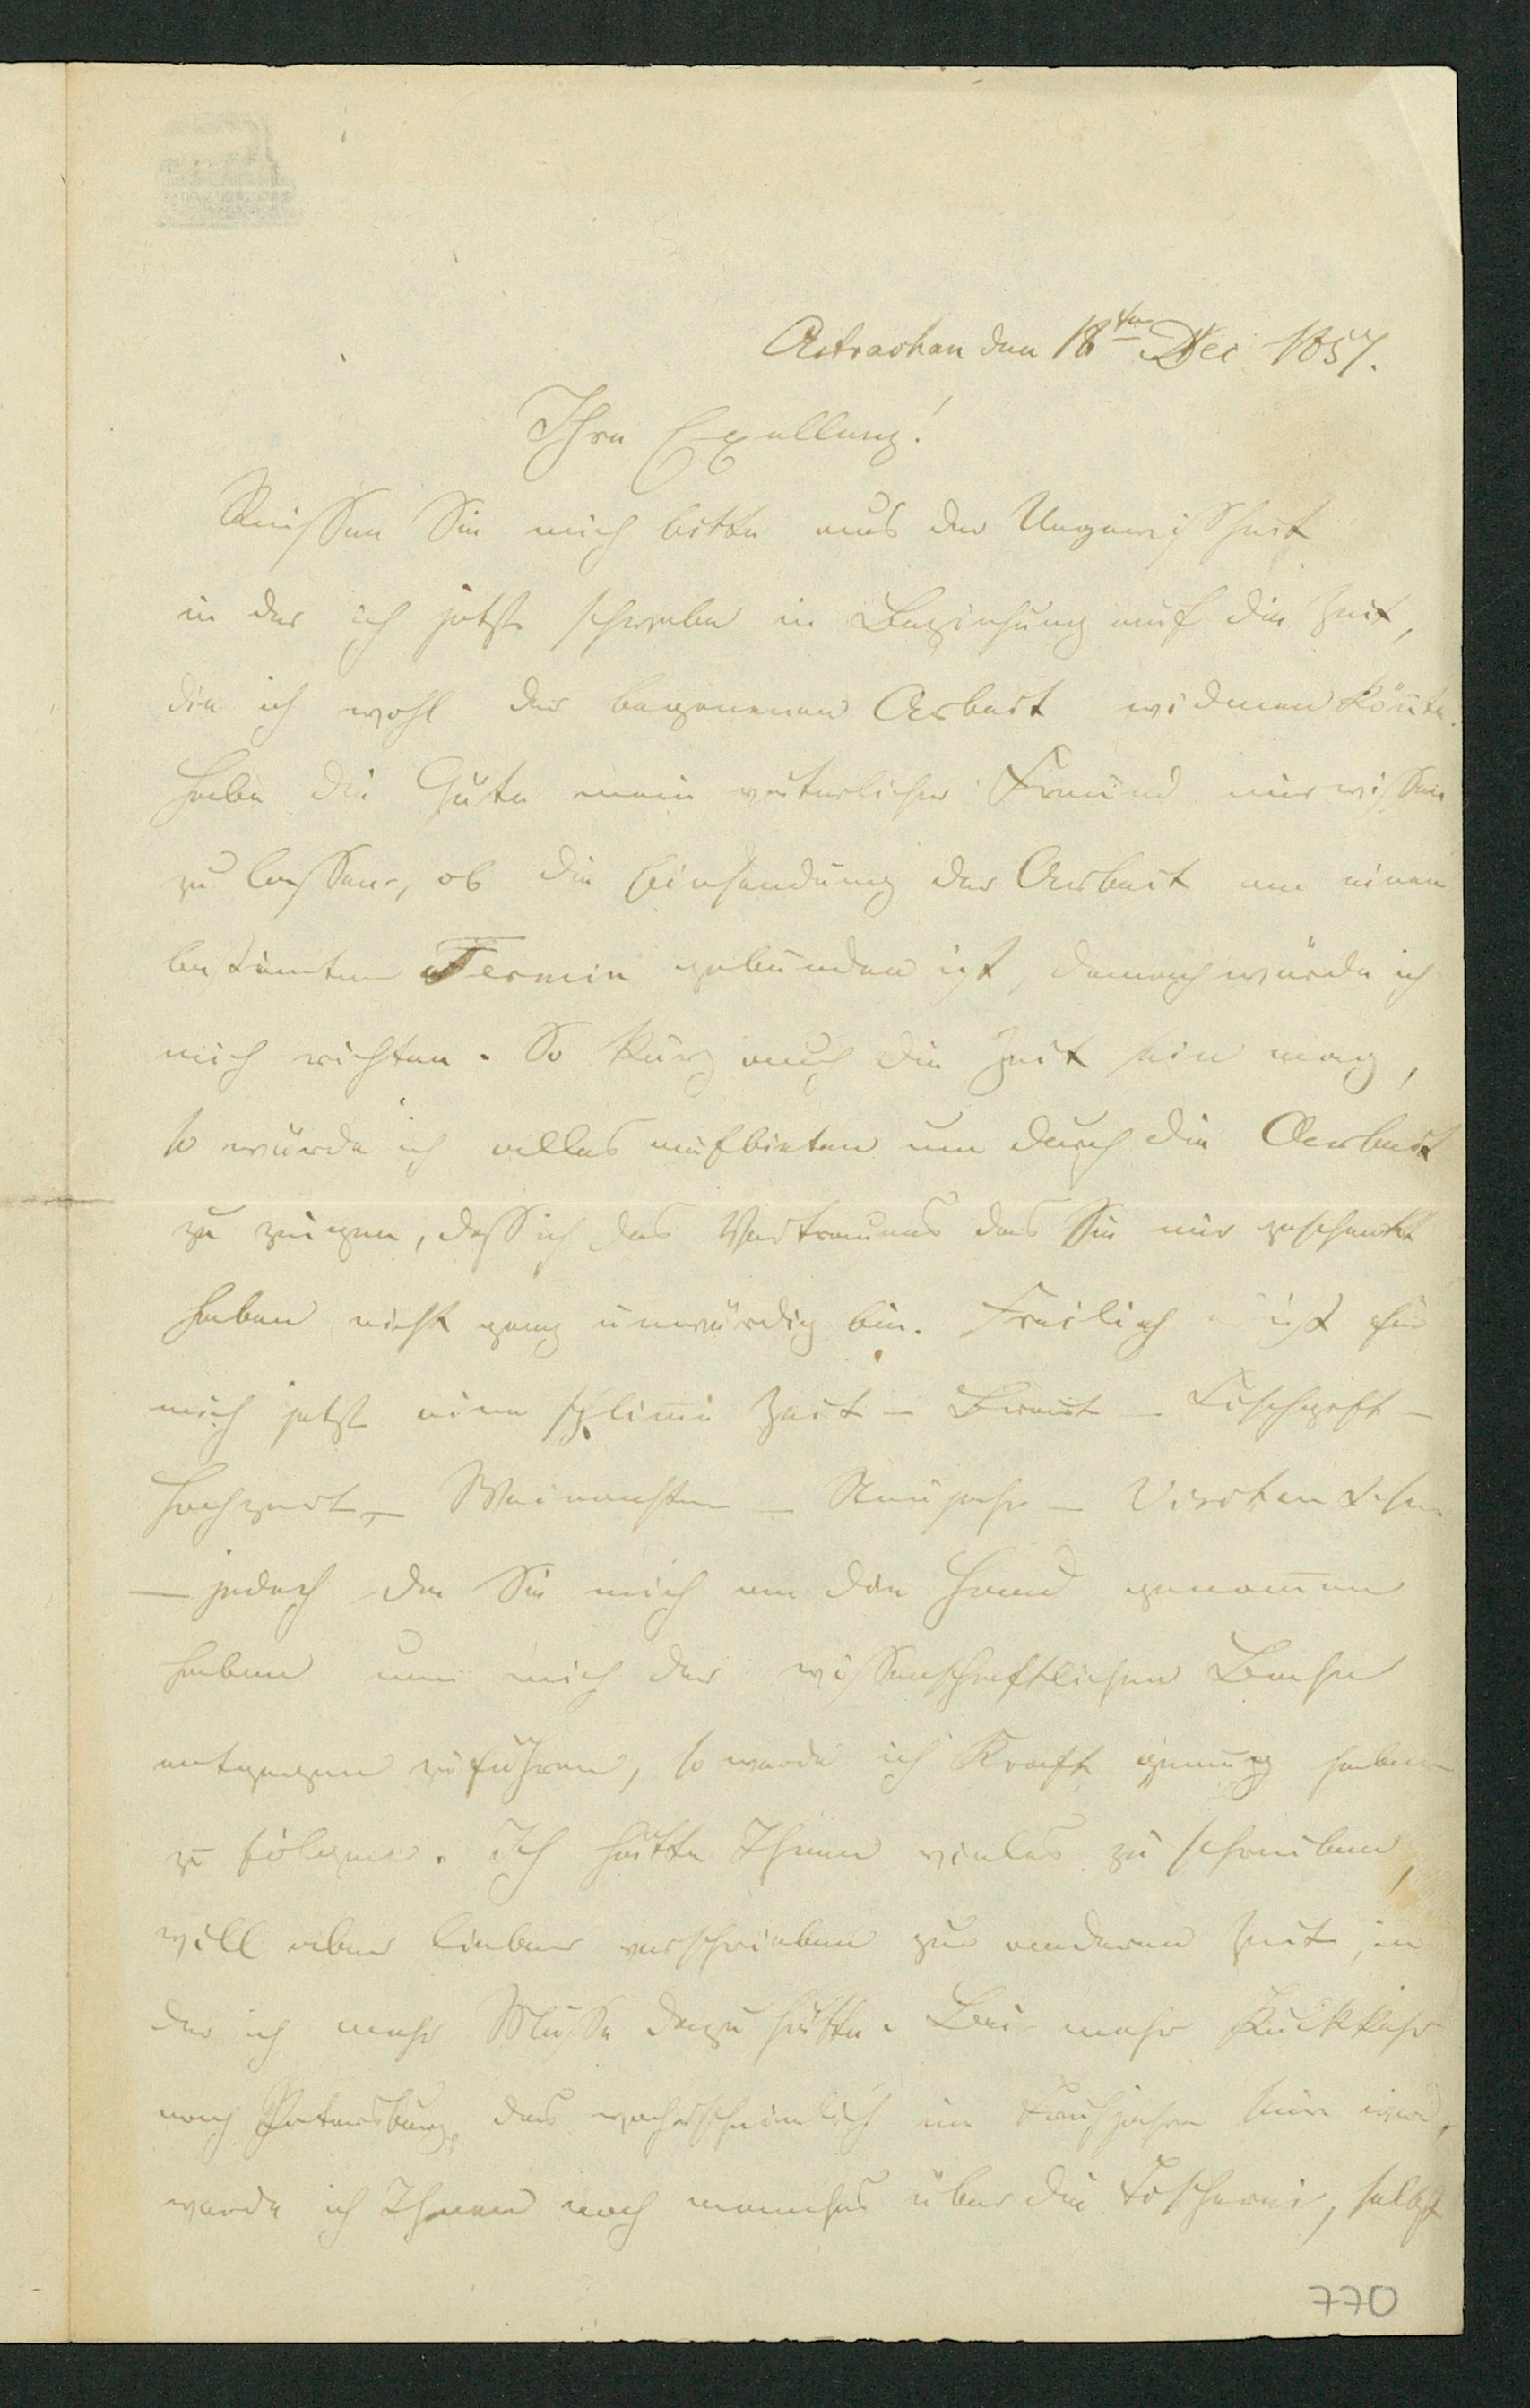 Astrachan den 18ten Dec 1857.
Ihre Exellenz!
Reissen Sie mich bitte aus der Ungewissheit
in der ich jetzt schwebe in Beziehung auf die Zeit,
die ich wohl der begonenen Arbeit widmen könte.
Habe die Güte mein väterlicher Freund mir wissen
zu lassen, ob die Einsendung der Arbeit an einen
bestimten Termin gebunden ist, danach würde ich
mich richten. So kurz auch die Zeit sein mag,
so würde ich alles aufbieten um durch die Arbeit
zu zeigen, dass ich das Vertrauens das Sie mir geschenkt
haben nicht ganz unwürdig bin. Freilich ist für
mich jetzt eine schlime Zeit – Braut – Fischgift –
Hochzeit – Weinachten – Neujahr – Visiten
– jedoch da Sie mich an die Hand genomen
haben um mich der wissenschaftlichen Bahn
entgegen zu führen, so werde ich Kraft genug haben
zu folgen. Ich hätte Ihnen vieles zu schreiben,
will aber lieber verschieben zur anderen Zeit, in
der ich mehr Musse dazu hätte. Bei Rückkehr
nach Petersburg, das wahrscheinlich im Frühjahre sein wird,
werde ich Ihnen noch manches über die Fischerei, selbst
770